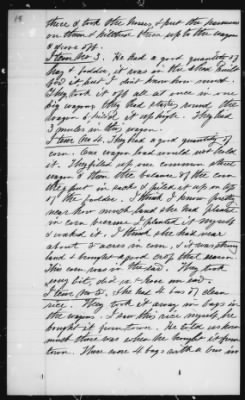 three & took the horses, & put the harness
on them & hitched them up to the wagon
& drove off.
Item No. 3. He had a good quantity of
hay & fodder, it was in the
shed but I don't know how much.
They took it off all at once in one
big wagon, they had stakes round the
wagon & piled it up high. They had
3 mules in this wagon.
Item No. 4. They had a good quantity of
corn. One wagon load would not hold
it. They filled up one common
wagon & then the balance of the corn
they put in sacks & piled it up on top
of the fodder. I think I know pretty
near how much land she had planted
in corn because I planted it myself
& worked it. I think she had near
about 5 acres in corn, & it was strong
land & brought a good crop that season.
The corn was in the ear. They took
every bit, did not leave an ear.
Item No 5. She had 4 bus of clean
rice. They took it away in bags in
the wagons. I saw this rice myself, he
bought it from town. He told us how
much there was when he bought it from
town. There were 4 bags with a bus in